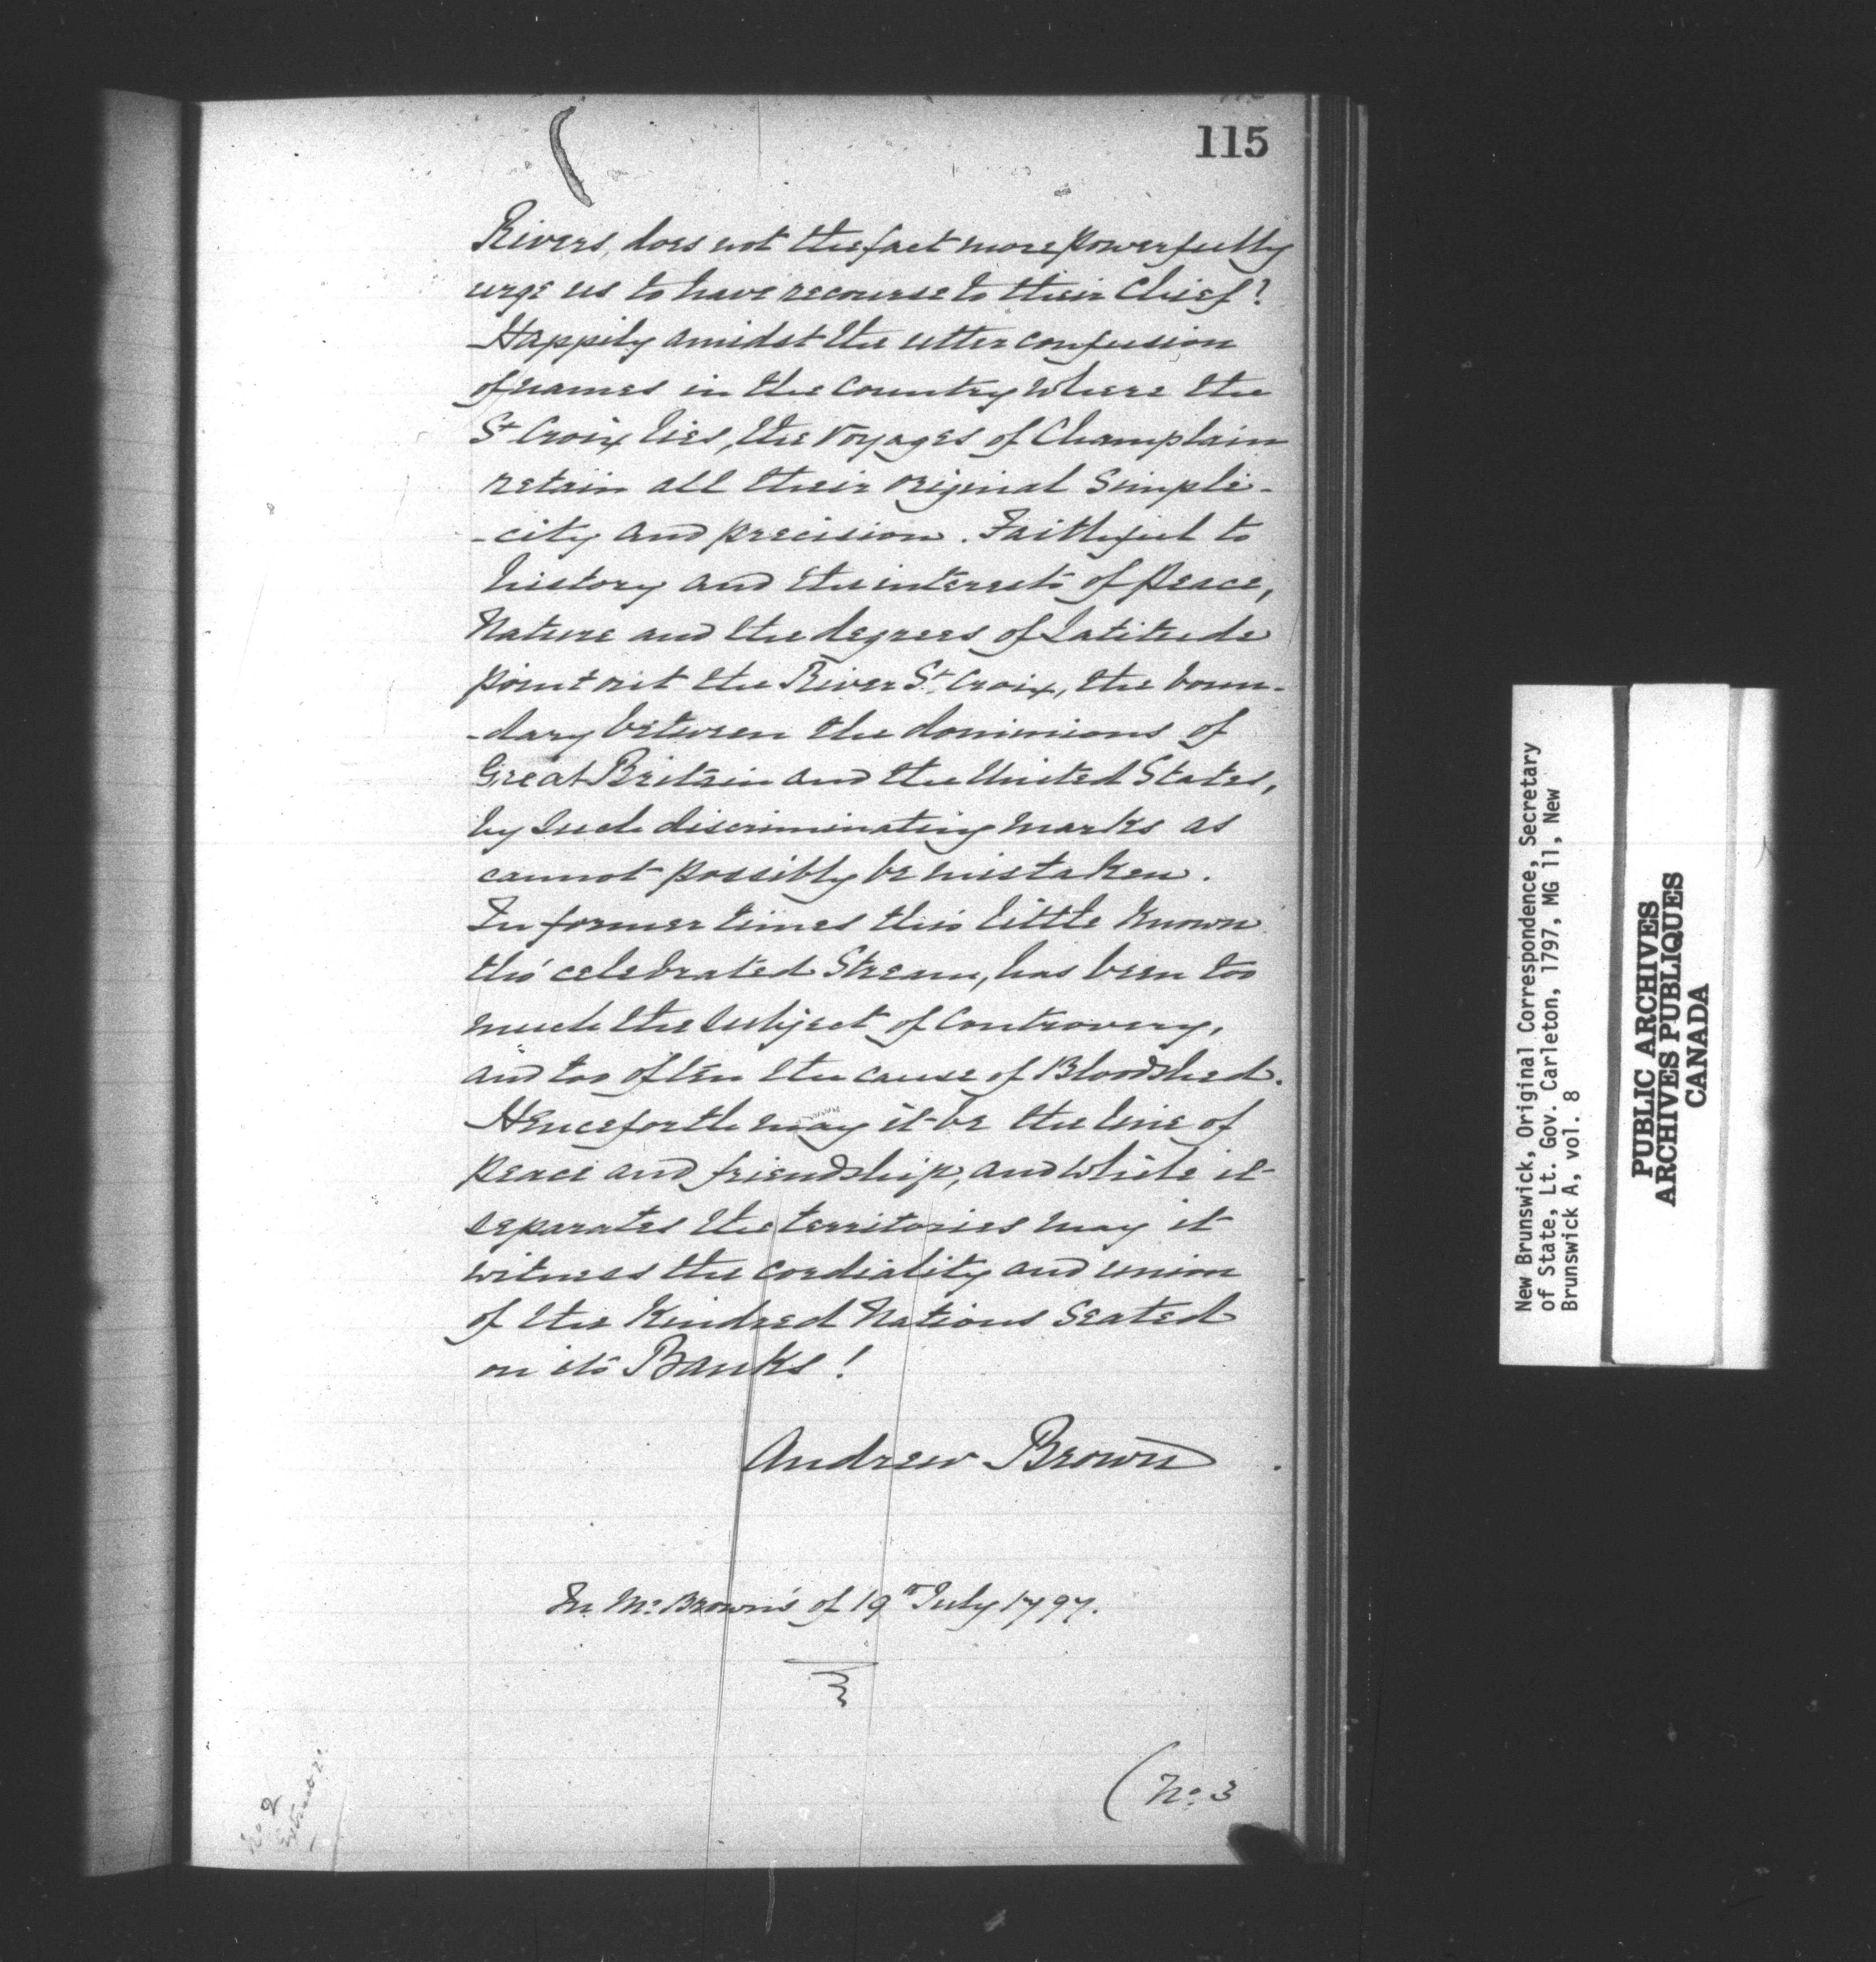 115
Rivers, does not the fact more powerfully
urge us to have recourse to their Chief?
Happily amidst the utter confusion
of names in the Country where the
St Croix lies, the Voyages of Champlain
retain all their original Simpli-
-city and precision. Faithful to
history and the interests of Peace,
Nature and the degrees of Latitude
point out the River St. Croix, the boun-
-dary between the dominions of
Great Britain and the United States,
by such discriminating marks as
cannot possibly be mistaken.
In former times this little known
tho' celebrated Stream, has been too
much the subject of Controversy,
and too often the cause of Bloodshed.
Henceforth may it be the line of
peace and friendship, and while it
separates the territories may it
witness the cordiality and union
of the Kindred Nations Seated
on its Banks!
Andrew Brown
In Mr Brown's of 19th July 1797.
(No. 3
No 2
New Brunswick, Original Correspondence, Secretary
of State, Lt. Gov. Carleton, 1797, MG 11, New
Brunswick A, vol. 8
PUBLIC ARCHIVES
ARCHIVES PUBLIQUES
CANADA